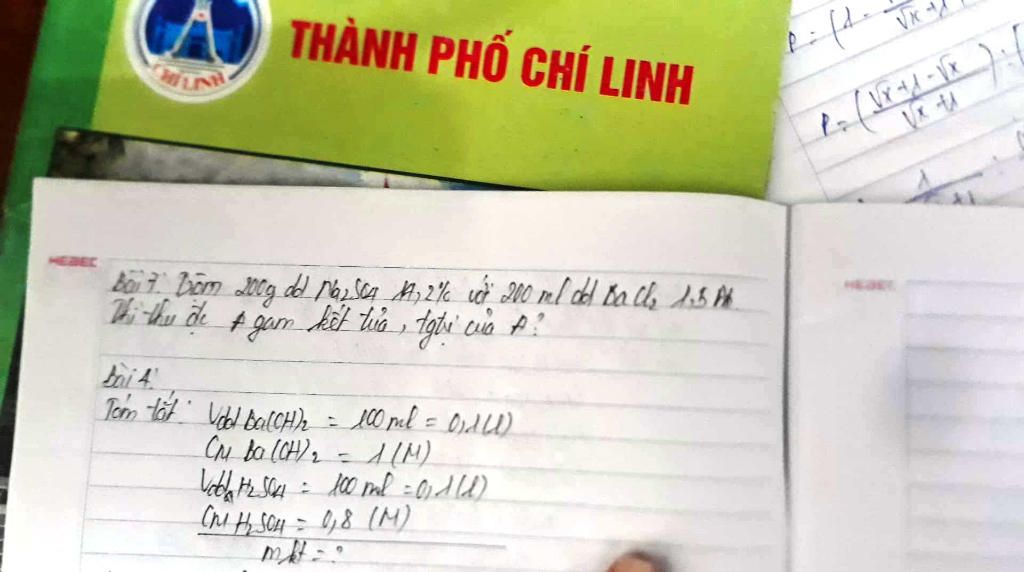 CHÍ LINH
THÀNH PHỐ CHÍ LINH
P = (1 -
√x + 1
P = (√x+1-√x / √x+1) : (
1
HEBEC
Bài 7: Trộn 200g dd Na2SO4 14,2% với 200 ml dd BaCl2 1,5 M.
Thì thu đc A gam kết tủa, tgtrị của A?
Bài 4:
Tóm tắt: Vdd Ba(OH)2 = 100 ml = 0,1(l)
CM Ba(OH)2 = 1 (M)
Vdd H2SO4 = 100 ml = 0,1(l)
CM H2SO4 = 0,8 (M)
m kt = ?
HEBEC